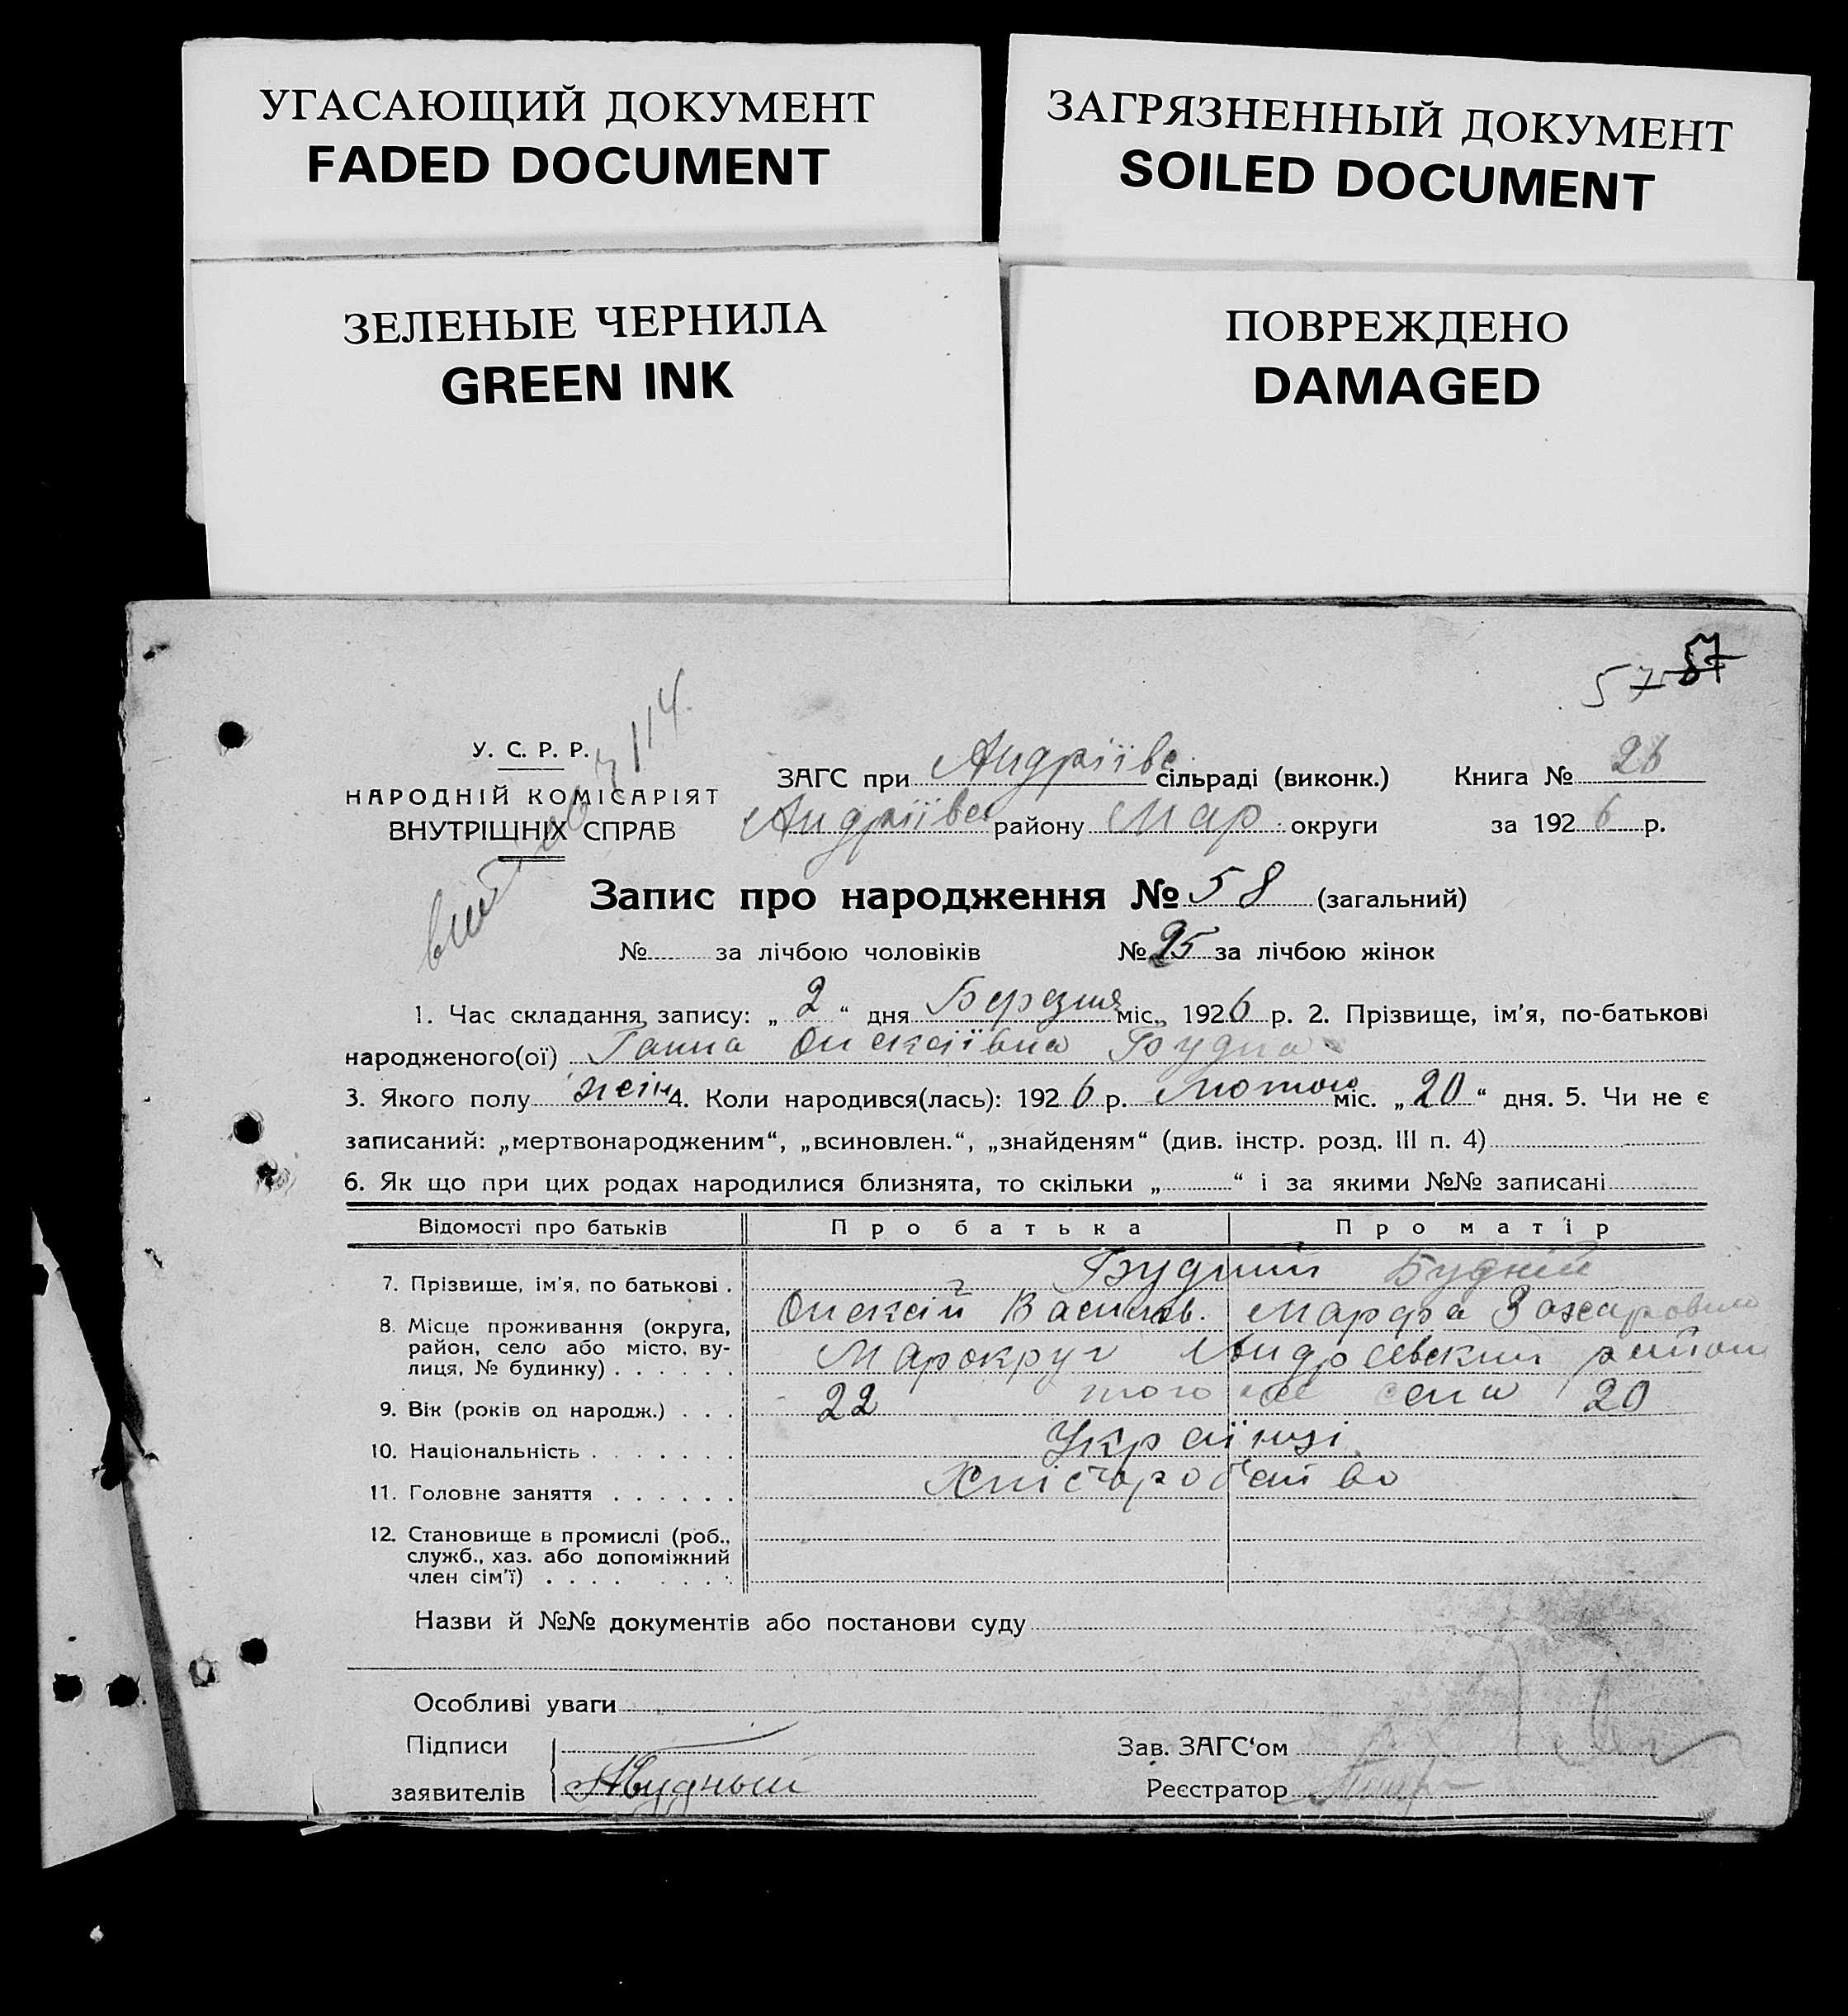 УГАСАЮЩИЙ ДОКУМЕНТ
FADED DOCUMENT
ЗАГРЯЗНЕННЫЙ ДОКУМЕНТ
SOILED DOCUMENT
ЗЕЛЕНЫЕ ЧЕРНИЛА
GREEN INK
ПОВРЕЖДЕНО
DAMAGED
57 57
У. С. Р. Р.
НАРОДНІЙ КОМІСАРІЯТ
ВНУТРІШНІХ СПРАВ
ЗАГС при Андріївс сільраді (виконк.) Книга № 26
Андріївс району Мар округи за 1926 р.
Запис про народження № 58 (загальний)
№ за лічбою чоловіків № 25 за лічбою жінок
1. Час складання запису: „2“ дня Березня міс. 1926 р. 2. Прізвище, ім'я, по-батькові
народженого(ої) Ганна Олексіївна Будна
3. Якого полу жін 4. Коли народився(лась): 1926 р. Лютого міс. „20“ дня. 5. Чи не є
записаний: „мертвонародженим“, „всиновлен.“, „знайденям“ (див. інстр. розд. III п. 4)
6. Як що при цих родах народилися близнята, то скільки „ “ і за якими №№ записані
Відомості про батьків Про батька Про матір
7. Прізвище, ім'я, по батькові . Будний Будній
Олексій Василів. Марфа Захаровна
8. Місце проживання (округа,
район, село або місто, вулиця, № будинку) . . . . . . Марокруг Андреевский район
того же села
9. Вік (років од народж.) . . . 22 20
10. Національність . . . . . . . Українці
11. Головне заняття . . . . . . Хліборобство
12. Становище в промислі (роб.,
служб., хаз. або допоміжний
член сім'ї) . . . . . . . .
Назви й №№ документів або постанови суду
Особливі уваги
Підписи Зав. ЗАГС'ом
заявителів АБудный Реєстратор